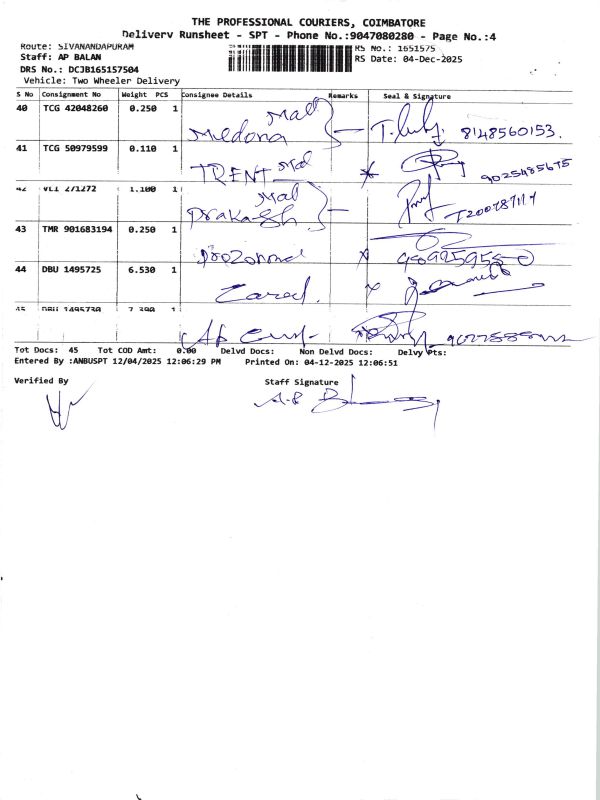 THE PROFESSIONAL COURIERS, COIMBATORE
Delivery Runsheet - SPT - Phone No.:9047080280 - Page No.:4
Route: SIVANANDAPURAM
RS No.: 1651575
Staff: AP BALAN
RS Date: 04-Dec-2025
DRS No.: DCJB165157504
Vehicle: Two Wheeler Delivery
S No Consignment No Weight PCS Consignee Details Remarks Seal & Signature
40 TCG 42048260 0.250 1
Mal
Medona
8148560153.
41 TCG 50979599 0.110 1
TRENT Mal
9025485675
42 VLI 271272 1.100 1
Mal
Prakash
43 TMR 901683194 0.250 1
44 DBU 1495725 6.530 1
45 DBU 1495730 7.390 1
Tot Docs: 45 Tot COD Amt: 0.00 Delvd Docs: Non Delvd Docs: Delvy Pts:
Entered By :ANBUSPT 12/04/2025 12:06:29 PM Printed On: 04-12-2025 12:06:51
Verified By
Staff Signature